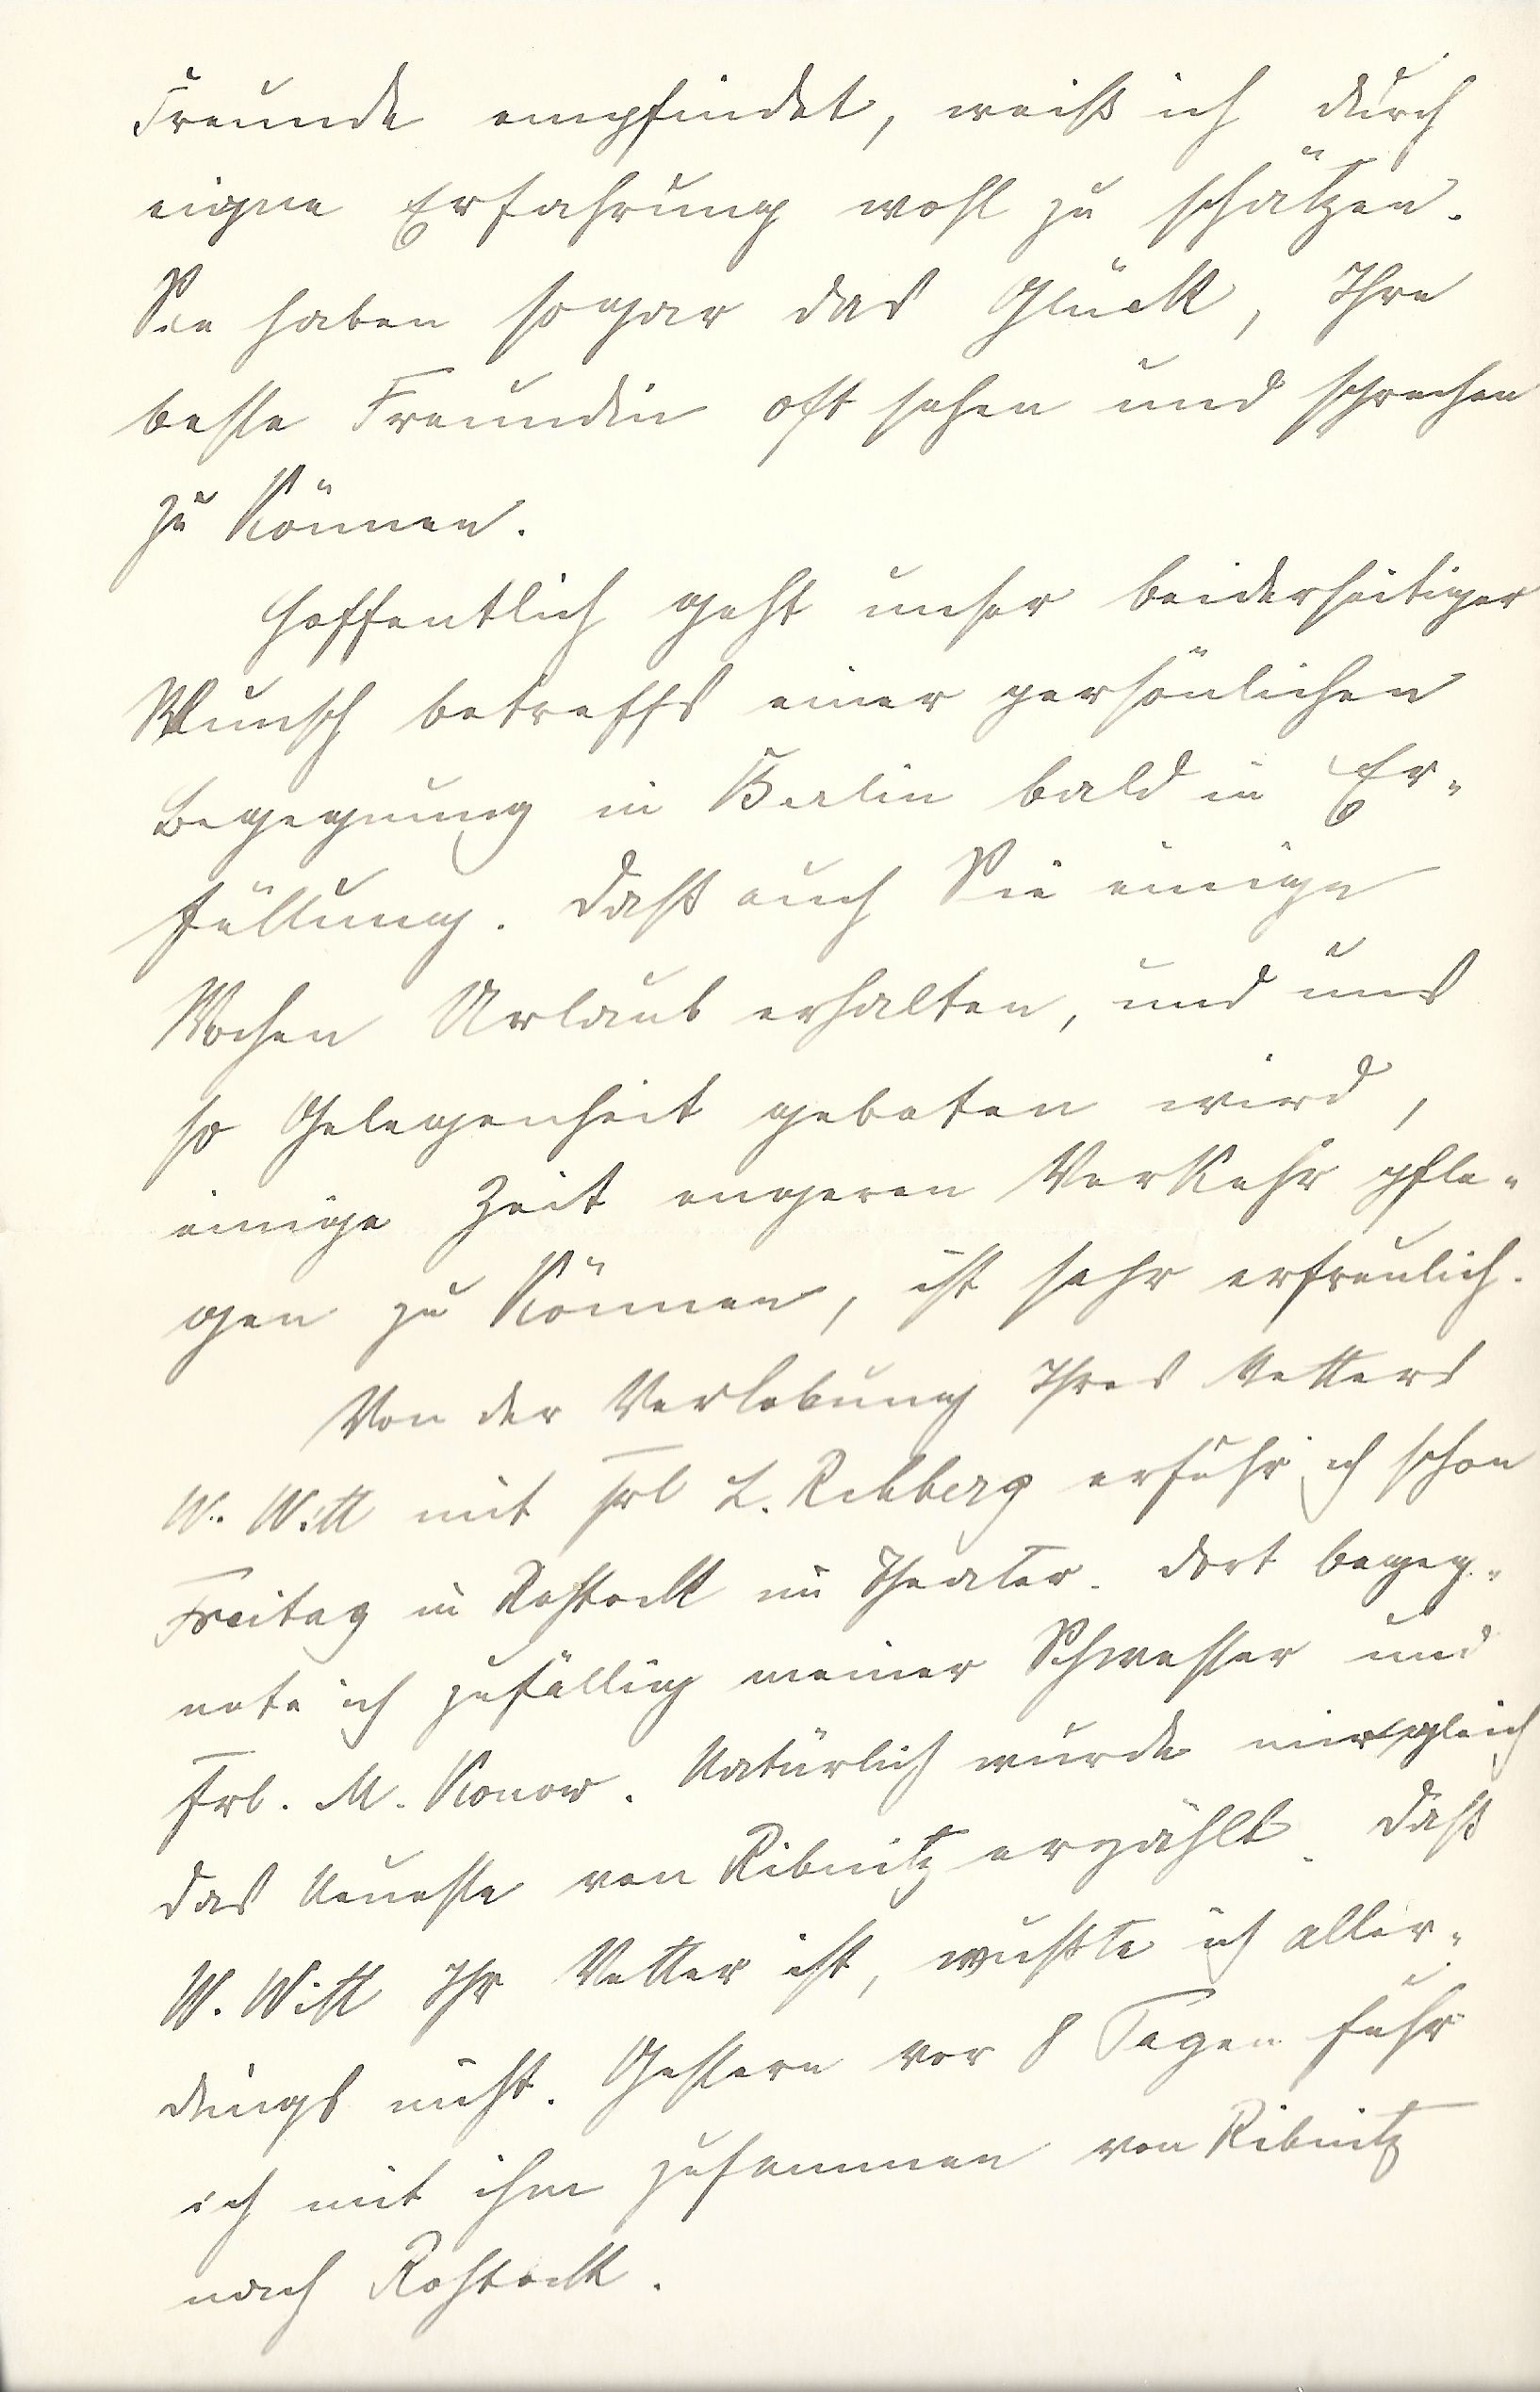 Freunde empfindet, weiß ich durch
eigne Erfahrung wohl zu schätzen.
Sie haben sogar das Glück, Ihre
beste Freundin oft sehen und sprechen
zu können.
Hoffentlich geht unser beiderseitiger
Wunsch betreffs einer persönlichen
Begegnung in Berlin bald in Er-
füllung. Daß auch Sie einige
Wochen Urlaub erhalten, und uns
so Gelegenheit geboten wird,
einige Zeit engeren Verkehr pfle-
gen zu können, ist sehr erfreulich.
Von der Verlobung Ihres Vetters
W. Witt mit Frl L. Rehberg erfuhr ich schon
Freitag in Rostock im Theater. Dort begeg-
nete ich zufällig meiner Schwester und
Frl. M. Konow. Natürlich wurde mir gleich
das Neueste von Ribnitz erzählt. Daß
W. Witt Ihr Vetter ist, wußte ich aller-
dings nicht. Gestern vor 8 Tagen fuhr
ich mit ihm zusammen von Ribnitz
nach Rostock.